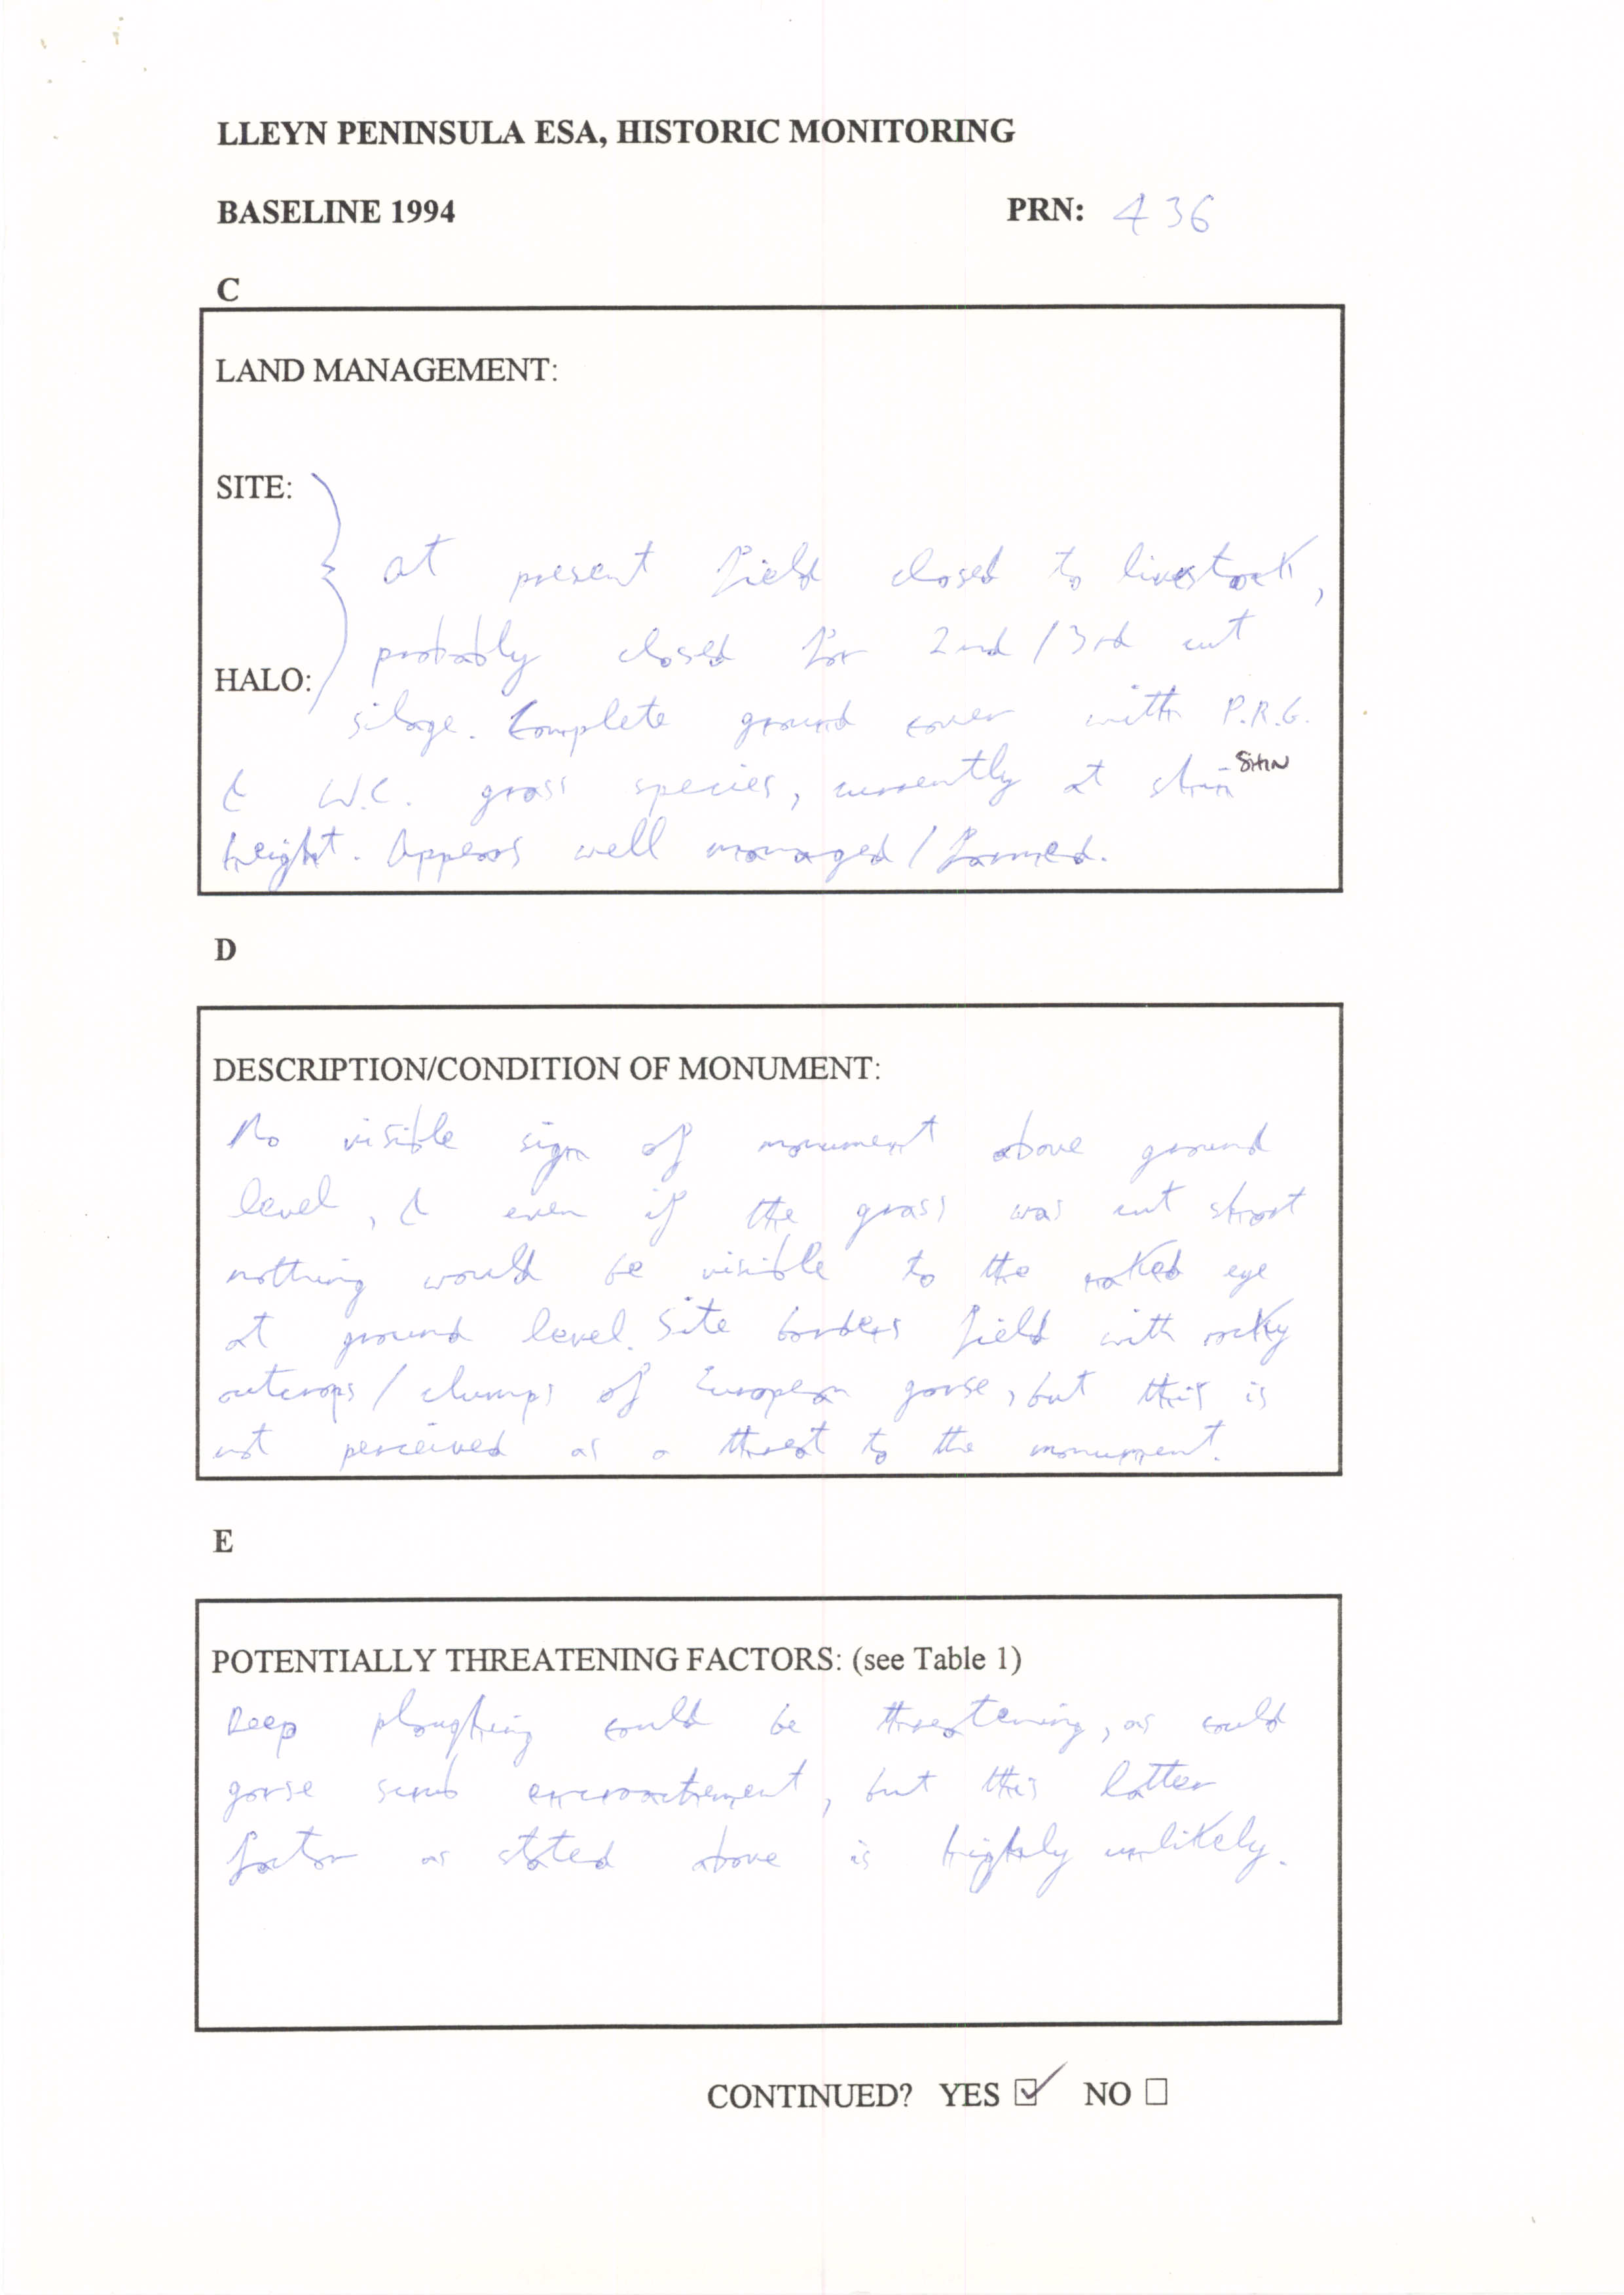 LLEYN PENINSULA ESA, HISTORIC MONITORING
BASELINE 1994 PRN: 436
C
LAND MANAGEMENT:
SITE:
at present field closed to livestock,
probably closed for 2nd/3rd cut
HALO:
silage. Complete ground cover with P.R.G.
& W.C. grass species, currently at shin SHIN
height. Appears well managed/farmed.
D
DESCRIPTION/CONDITION OF MONUMENT:
No visible sign of monument above ground
level, & even if the grass was cut short
nothing would be visible to the naked eye
at ground level. Site borders field with rocky
outcrops/clumps of European gorse, but this is
not perceived as a threat to the monument.
E
POTENTIALLY THREATENING FACTORS: (see Table 1)
Deep ploughing could be threatening, as could
gorse scrub encroachement, but this latter
factor as stated above is highly unlikely.
CONTINUED? YES ☑ NO ☐